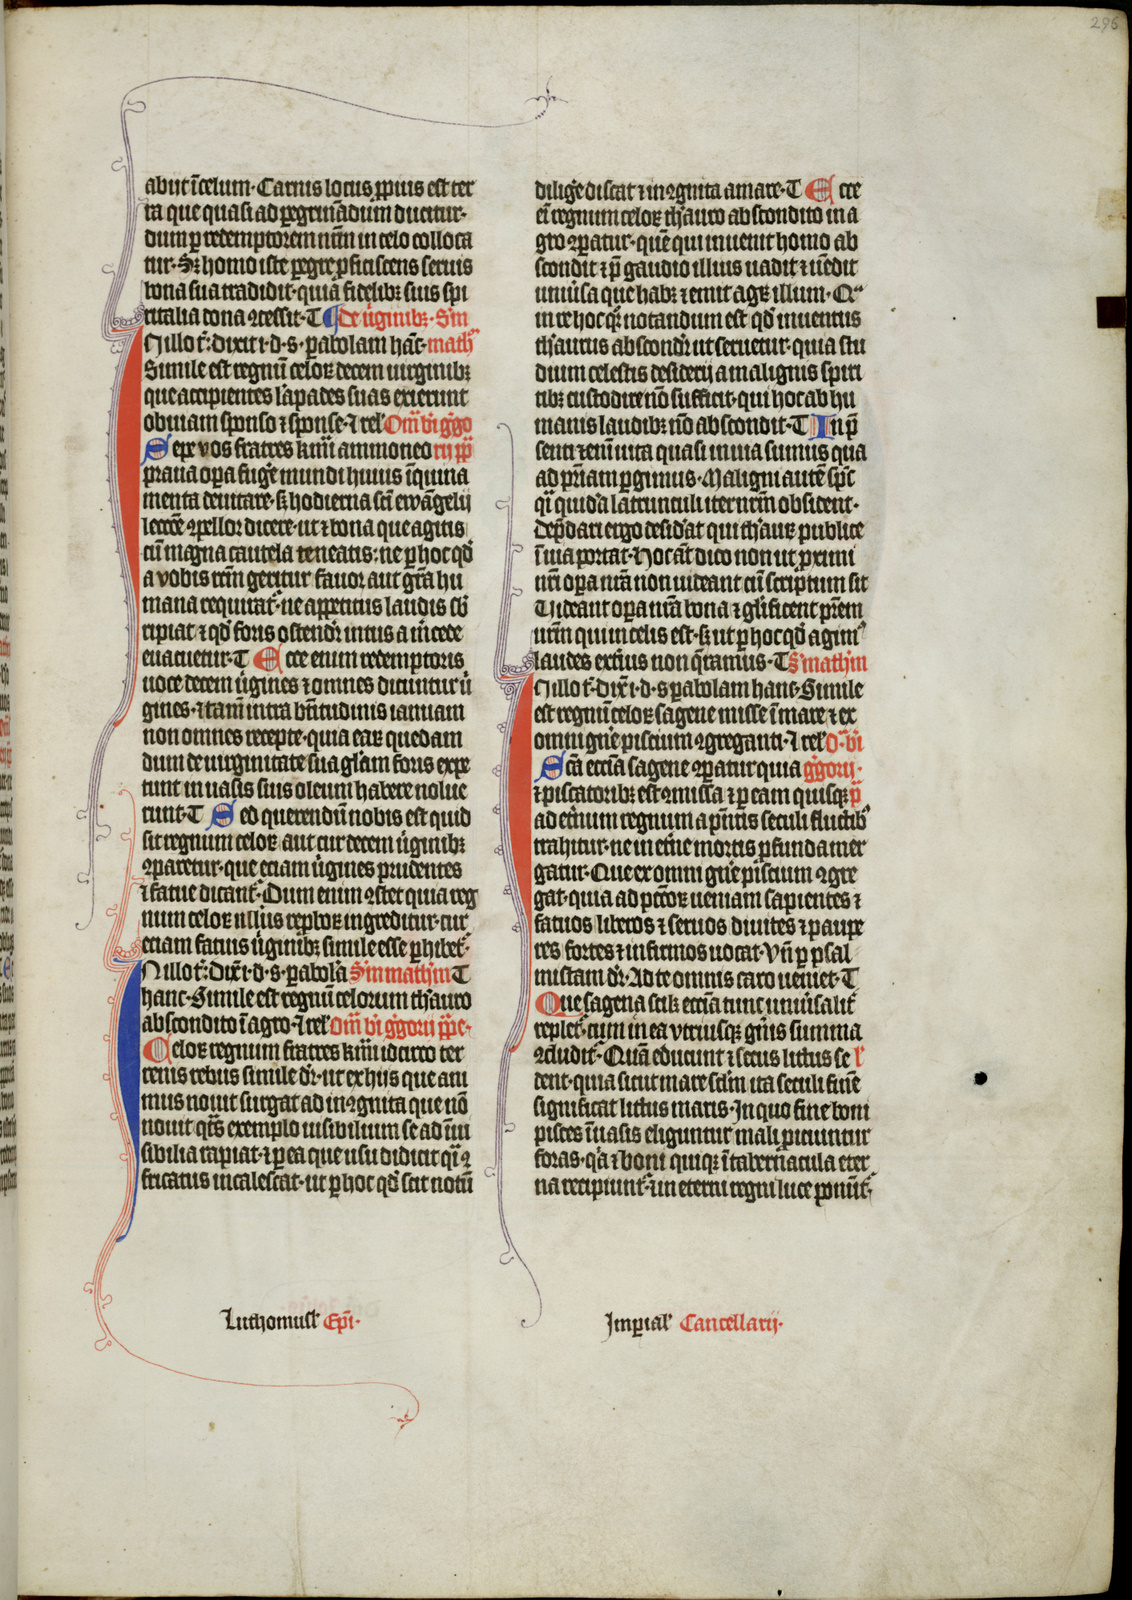 296
abiit i̅celum· Carnis locus ꝓpius est ter
ra que quasi ad ꝑegrina̅dum ducitur·
dum ꝑ redemptorem nr̅m in celo colloca
tur· Sꝫ homo iste ꝑegre ꝓficiscens seruis
bona sua tradidit· quia fidelibꝫ suis spi
ritalia dona ꝯcessit· T ¶ de u̓ginibꝫ· S'm
In illo t̅: dixit i· d· s· ꝑabolam ha̅c· math'
Simile est regnu̅ celoꝝ decem uirginibꝫ
que accipientes la̅pades suas exierunt
obuiam sponso ⁊ sponse· ⁊ rel' Om̅ bi̅ gg̅o
Sepe vos fratres kmi̅ ammoneo rij pp̅
praua oꝑa fuge̓ mundi huius i̅quina
menta deuitare· sꝫ hodierna sc̅i ewa̅gelij
lecc̅e ꝯpellor dicere· ut ⁊ bona que agitis
cu̅ magna cautela teneatis: ne ꝑ hoc qd̅
a vobis rc̅m geritur fauor aut gr̅a hu
mana requirat̓· ne appetitus laudis sb̅
ripiat ⁊ qd̅ foris ostendit̓ intus a m̓cede
euacuetur· T Ecce enim redemptoris
uoce decem u̓gines ⁊ omnes dicuntur u̓
gines· ⁊ tam̅ intra bt̅itudinis ianuam
non omnes recepte· quia eaꝝ quedam
dum de uirginitate sua gl̅am foris expe
tunt in uasis suis oleum habere nolue
runt· T Sed querendu̅ nobis est quid
sit regnum celoꝝ aut cur decem u̓ginibꝫ
ꝯparetur· que etiam u̓gines prudentes
⁊ fatue dicant̓· Dum enim ꝯstet quia reg
num celoꝝ nllius reproboꝝ ingreditur· cur
etiam fatuis u̓ginibꝫ simile esse ꝑhibet̓·
In illo t̅: Dixi̅ i· d· s· ꝑabola̅ S'm mathm̅ T
hanc· Simile est regnu̅ celorum th̓auro
abscondito i̅ agro· ⁊ rel' Om̅ bi̅ gg̅orii pp̅e·
Celoꝝ regnum fratres kmi̅ idcirco ter
renis rebus simile dr̅· ut ex hijs que ani
mus nouit surgat ad incognita que no̅
nouit q̅ts exemplo uisibilium se ad i̅ui
sibilia rapiat· ⁊ ꝑ ea que usu didicit q̅i ꝯ
fricatus incalescat· ut ꝑ hoc qd̅ scit notu̅
dilige̓ discat ⁊ inꝯgnita amare· T Ecce
ei̅ regnum celoꝝ th̓auro abscondito in a
gro ꝯꝑatur· que̅ qui inuenit homo ab
scondit ⁊ p̅ gaudio illius uadit ⁊ ue̅dit
uniu̓sa que habꝫ ⁊ emit agꝝ illum· Qua
in re hoc qꝫ notandum est qd̅ inuentus
th̓aurus abscondit̓ ut seruetur· quia stu
dium celestis desiderij a malignis spiri
tibꝫ custodire no̅ sufficit· qui hoc ab hu
manis laudibꝫ no̅ abscondit· T In p̅
senti eteni̅ uita quasi in uia sumus qua
ad pr̅iam ꝑgimus· Maligni aute̅ sp̅c
q̅i quida̅ latrunculi iter nr̅m obsident·
Dep̅dari ergo desid̓at qui th̓auꝝ publice
i̅ uia portat· Hoc au̅t dico non ut ꝓximi
nr̅i oꝑa nr̅a non uideant cu̅ scriptum sit
Uideant oꝑa nr̅a bona ⁊ gl̅ificent pr̅em
ur̅m qui in celis est· sꝫ ut ꝑ hoc qd̅ agim'
laudes ext̓ius non qr̅amus· T S'm mathm̅
In illo t̅· Dixi̅ i· d· s ꝑabolam hanc· Simile
est regnu̅ celoꝝ sagene misse i̅ mare ⁊ ex
omni gn̓e piscium ꝯgreganti· ⁊ rel' O̅· bi̅
Sc̅a ecc̅ia sagene ꝯꝑatur quia gg̅orij·
⁊ piscatoribꝫ est ꝯmissa ⁊ ꝑ eam quisqꝫ p̅
ad et̓num regnum a pn̅tis seculi fluctibꝫ
trahitur· ne in et̓ne mortis ꝓfunda mer
gatur· Que ex omni gn̓e piscium ꝯgre
gat· quia ad pcc̅oꝝ ueniam sapientes ⁊
fatuos liberos ⁊ seruos diuites ⁊ pauꝑe
res fortes ⁊ infirmos uocat· Vn̅ ꝑ psal
mistam dr̅· Ad te omnis caro ueniet· T
Que sagena scilꝫ ecc̅ia tunc uniu̓salit̓
replet̓· cum in ea utriusqꝫ gn̓is summa
ꝯcludit̓· Qua̅ educunt ⁊ secus litus se l'
dent· quia sicut mare sc̅lm ita seculi fine̅
significat litus maris· In quo fine boni
pisces i̅ uasis eliguntur mali ꝓiciuntur
foras· q̅a ⁊ boni quiqꝫ i̅ tabernacula eter
na recipiunt̓· ⁊ in eterni regni luce ponu̅t̓·
Luthomusl' Epi̅·
Imꝑial' Cancellarij·